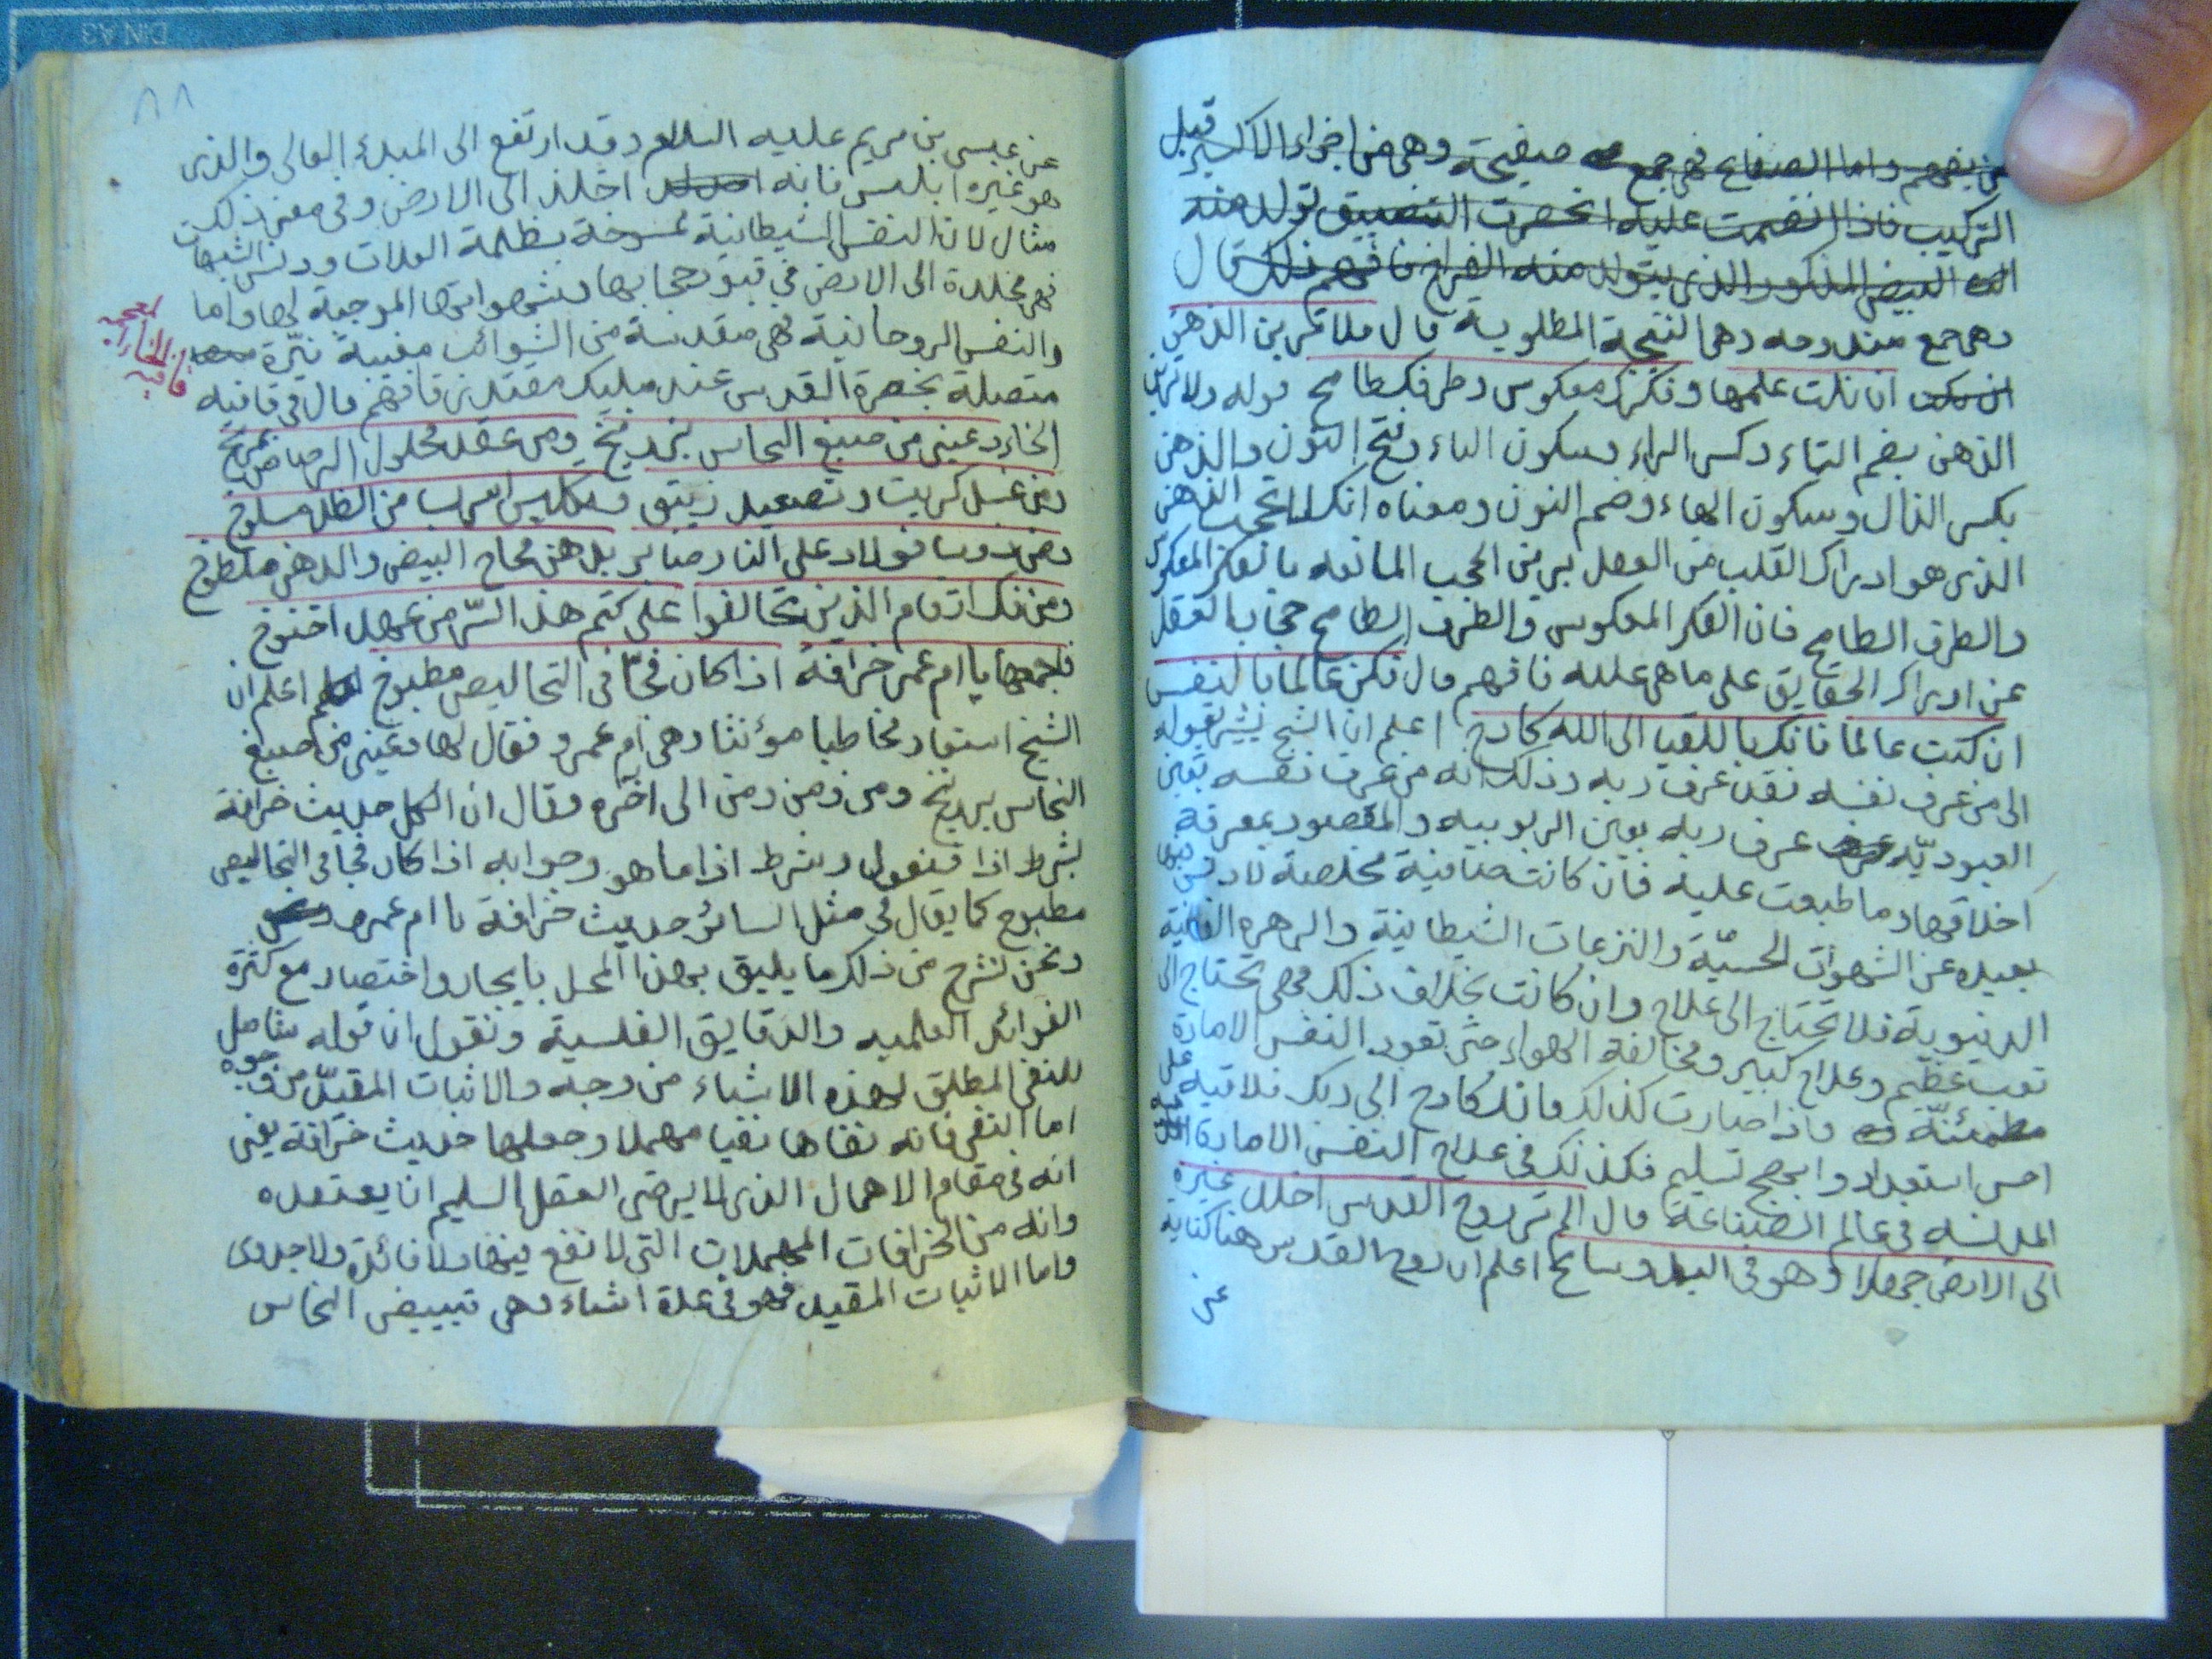 من بفهم واما الصفايح فهى جمع صفيحة وهى من اجزاء الاكسير قبل
التركيب فاذا انضمت عليه انحصرت التضييق تولد منه
البيض المذكور الذى يتولد منه الفراخ فافهم ذلك قال
وهى جمع وهى النتيجة المطلوبة قال فلا تربن الذهن
ان نلت علمها وفكرك معكوس وطرفك طامح قوله ولا تربن
الذهن بضم التاء وكسر الراء وسكون الباء وفتح النون والذهن
بكسر الذال وسكون الهاء وضم النون ومعناه انك لا تحجب الذهن
الذى هو ادراك القلب من العقل برين الحجب المانعه بالفكر المعكوس
والطرف الطامح فان الفكر المعكوس والطرف الطامح حجاب العقل
عن ادراك الحقايق على ما هى عليه فافهم قال فكن عالما بالنفس
ان كنت عالما فانك باللقيا الى الله كادح اعلم ان الشيخ يشير بقوله
الى من عرف نفسه فقد عرف ربه وذلك انه من عرف نفسه بعين
العبوديّه عرف ربه بعين الربوبيه والمقصود بمعرفة
اخلاقها وما طبعت عليه فان كانت صافية مخلصة
بعيده عن الشهوات الحسيّة والنزعات الشيطانية والزهره الفانية
الدنيوية فلا تحتاج الى علاج وان كانت بخلاف ذلك فهى تحتاج الى
تعب عظيم وعلاج كبير ومخالفة الهواء حتى تعود النفس الامارة
مطمئنّة فاذا صارت كذلك فانك كادح الى ربك فلاقيه على
احسن استعداد وابهج تسليم فكذلك فى علاج النفس الامارة
المدنسه فى عالم الصناعة قال الم تر روح القدس اخلد غيره
الى الارض جهلا وهو فى البد وسابح اعلم ان روح القدس هنا كناية
عن
٨٨
عن عيسى بن مريم عليه السلام وقد ارتفع الى المبدء العالى والذى
هو غيره ابليس فانه اخلد الى الارض وفى معنى ذلك
مثال لان النفس الشيطانية ممسوخة بظلمة العلات ودنس الشبهات
فهى مخلدة الى الارض فى قبور حجابها وشهواتها الموجبة لها واما
والنفس الروحانية فهى مقدسة من الشوائب مغيبة نيّرة
متصلة بحضرة القدس عند مليك مقتدر فافهم قال فى قافيه
الخاء دعينى من صبغ النحاس بزرنيخ ومن عقد محلول الرصاص بمريخ
ومن غسل كبريت وتصعيد زيبق وتكليس اسرب من الطلق مسلوخ
ومن ذوب فولاد على النار صابر بل هن محاح البيض والدهن ملطوخ
ومن فك ارقام الذين تحالفوا على كتم هذا السّر من عهد اخنوخ
فاجمعها يا ام عمرو خرافة اذا كان فجّا فى التخاليص مطبوخ اعلم ان
الشيخ استعار مخاطبا مؤنثا وهى ام عمرو فقال لها دعينى من صبغ
النحاس بزرنيخ ومن ومن ومن الى اخره وقال ان الكل حديث خرافة
بشرط اذا فنقول وشرط اذا ما هو وجوابه اذا كان فجا فى التخاليص
مطبوخ كما يقال فى مثل السائر حديث خرافة يا ام عمرو
ونحن نشرح من ذلك ما يليق بهذا المحل بايجاز واختصار مع كثرة
الفوائد العلميه والدقايق الفلسية ونقول ان قوله شامل
للنفى المطلق لهذه الاشياء من وجه والاثبات المقيّد من وجوه
اما النفى فانه نفاها نفيا مهملا وجعلها حديث خرافة يعنى
انه فى مقام الاهمال الذى لا يرضى العقل السليم ان يعتمده
وانه من الخرافات المهملات التى لا نفع فيها ولا فائدة ولا جدوى
واما الاثبات المقيد فهو فى عدة اشياء وهى تبييض النحاس
قافيه
الخاء
المعجمه